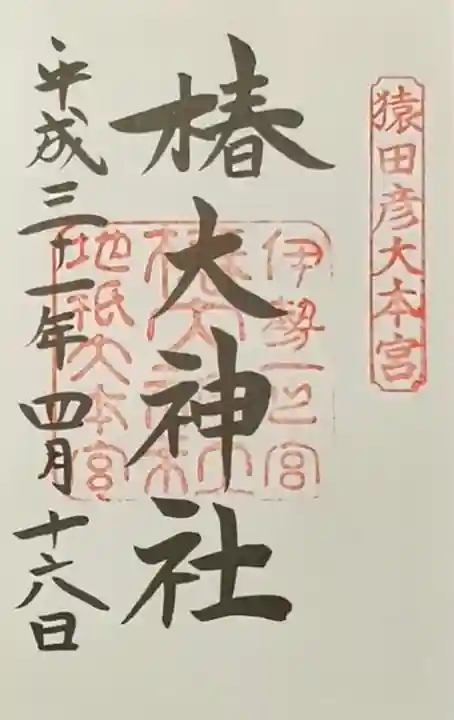 猿田彦大本宮
伊勢一之宮
椿大神社
椿大神社
地祇大本宮
平成三十一年四月十六日